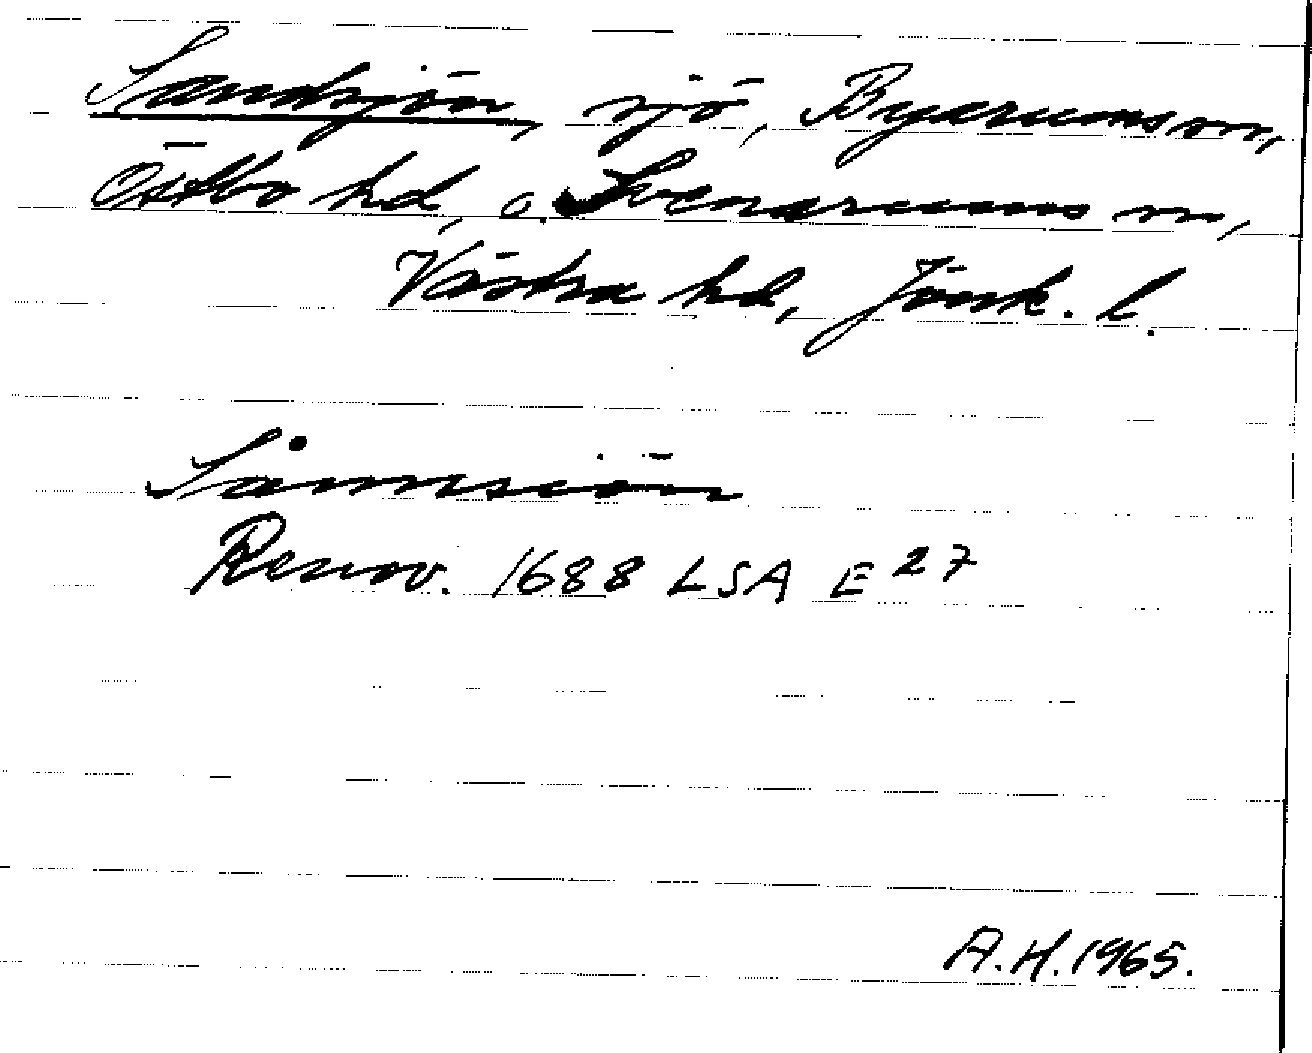 Sandsjön, sjö, Byarums sn,
Östbo hd, o. Svenarums sn,
Västra hd, Jönk. l.
Sånnsiön
Renov. 1688 LSA E 27
A.H. 1965.